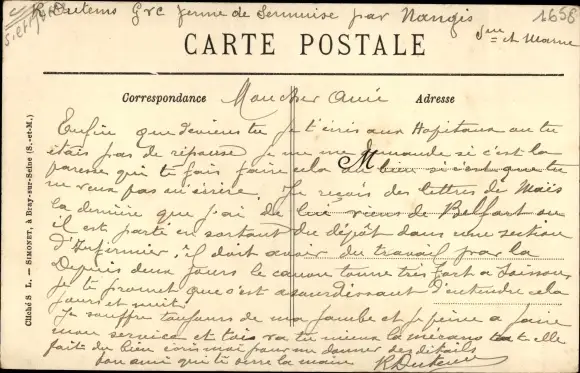 R. Dutems Gvc ferme de Sermoise par Nangis
Sne et Marne
1658
CARTE POSTALE
Correspondance
Adresse
M
Mon cher Ami
Enfin que deviens tu je t'écris aux Hopitaux ou tu
étais pas de réponse je me demande si c'est la
paresse qui te fais faire cela ou bien si c'est que tu
ne veux pas m'écrire. Je reçois des lettres de Maës
la dernière que j'ai de lui viens de Belfort ou
il est parti en sortant du dépôt dans une section
d'Infirmier, il doit avoir du travail par la
Depuis deux jours le canon tonne très fort a Soissons
je te promet que c'est assourdissant d'entendre cela
jours et nuit.
Je souffre toujours de ma jambe et je peine a faire
mon service et toi va tu mieux la mécano t'a t elle
fait du bien écris moi pour me donner des détails
ton ami qui te serre la main
Cliché S L. — SIMONET, à Bray-sur-Seine (S.-et-M.)